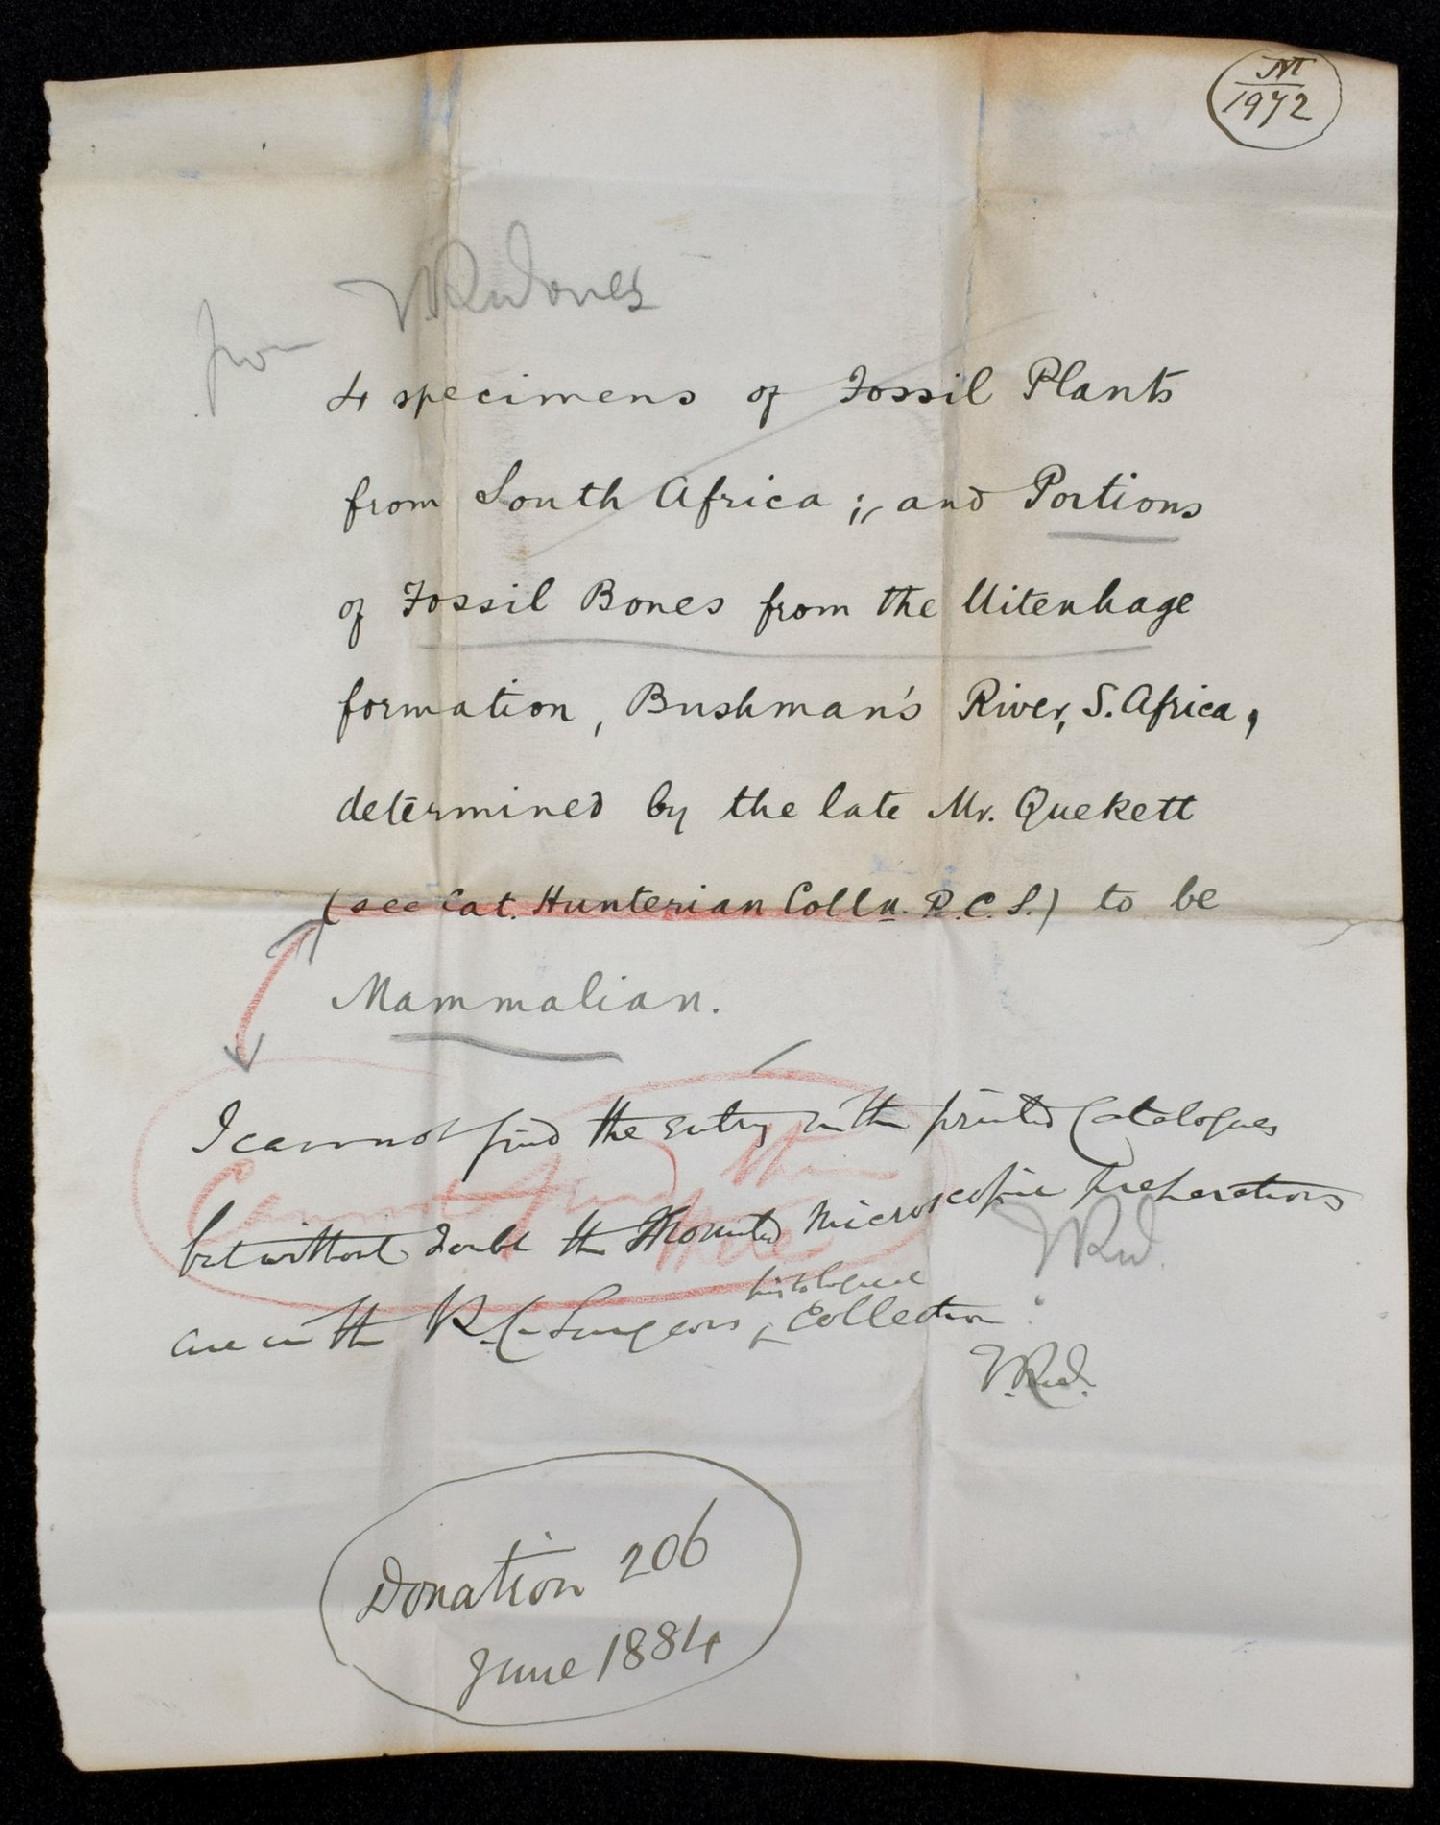 M
1972
from T. R. Jones
4 specimens of Fossil Plants
from South Africa; and Portions
of Fossil Bones from the Uitenhage
formation, Bushman's River, S. Africa,
determined by the late Mr. Quekett
(see Cat. Hunterian Colln. R.C.S.) to be
Mammalian.
I cannot find the entry in the printed Catalogues
Cannot find this
but without doubt the Mounted Microscopic preparations
are in the R. C. Surgeons histological Collection
Donation 206
June 1884